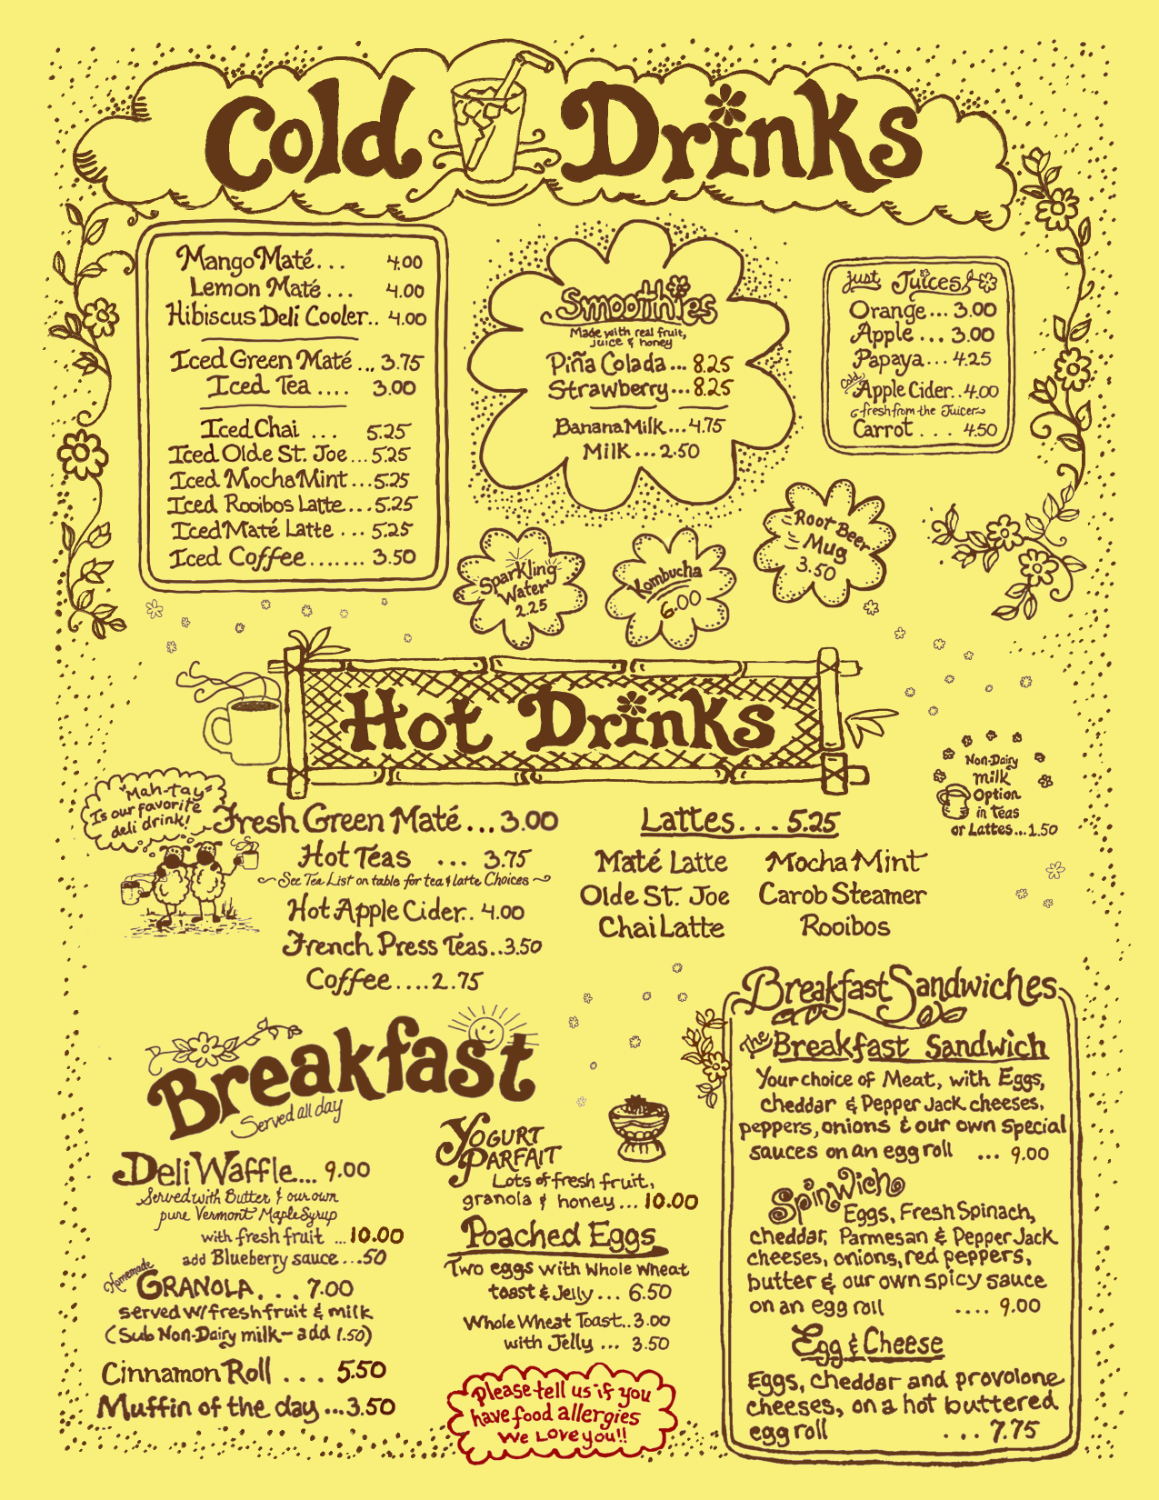 Cold Drinks
Mango Maté... 4.00
Lemon Maté ... 4.00
Hibiscus Deli Cooler.. 4.00
Iced Green Maté ... 3.75
Iced Tea .... 3.00
Iced Chai ... 5.25
Iced Olde St. Joe... 5.25
Iced Mocha Mint... 5.25
Iced Rooibos Latte.... 5.25
Iced Maté Latte .... 5.25
Iced Coffee....... 3.50
Smoothies
Made with real fruit,
juice & honey
Piña Colada ... 8.25
Strawberry... 8.25
Banana Milk... 4.75
Milk ... 2.50
Just Juices
Orange... 3.00
Apple ... 3.00
Papaya... 4.25
Cold Apple Cider..4.00
fresh from the Juicer
Carrot . . . 4.50
Sparkling
Water
2.25
Kombucha
6.00
Root Beer
Mug
3.50
Hot Drinks
"Mah-tay"
Is our favorite
deli drink!
Fresh Green Maté... 3.00
Hot Teas ... 3.75
~ See Tea List on table for tea & latte Choices ~
Hot Apple Cider.. 4.00
French Press Teas..3.50
Coffee....2.75
Lattes. . . 5.25
Maté Latte Mocha Mint
Olde St. Joe Carob Steamer
Chai Latte Rooibos
Non-Dairy
milk
Option
in Teas
or Lattes...1.50
Breakfast
Served all day
Deli Waffle... 9.00
Served with Butter & our own
pure Vermont Maple Syrup
with fresh fruit ...10.00
add Blueberry sauce...50
Homemade
GRANOLA. . . 7.00
served w/ fresh fruit & milk
(Sub Non-Dairy milk - add 1.50)
Cinnamon Roll . . . 5.50
Muffin of the day ...3.50
YOGURT
PARFAIT
Lots of fresh fruit,
granola & honey... 10.00
Poached Eggs
Two eggs with whole wheat
toast & Jelly ... 6.50
Whole Wheat Toast..3.00
with Jelly ... 3.50
Please tell us if you
have food allergies
We Love you!!
Breakfast Sandwiches
The Breakfast Sandwich
Your choice of Meat, with Eggs,
cheddar & Pepper Jack cheeses,
peppers, onions & our own special
sauces on an egg roll ... 9.00
SpinWich
Eggs, Fresh Spinach,
cheddar, Parmesan & Pepper Jack
cheeses, onions, red peppers,
butter & our own spicy sauce
on an egg roll .... 9.00
Egg & Cheese
Eggs, cheddar and provolone
cheeses, on a hot buttered
egg roll . . . 7.75